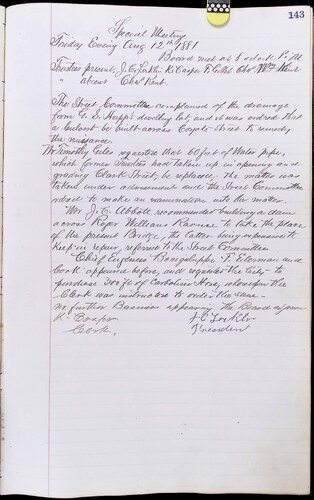 143
Special Meeting
Friday Eveing Aug 12th 1881
Board met at 8 oclock P. M.
Trustees present, J. C. Locklin K Casper F. Gilles Chs Wm Kent
" absent Chas Kent.
The Street Committee complained of the drainage
from G. S. Hupp's dwelling lot, and it was ordered that
a Culvert be built across Coyote Street to remedy
the nuisance.
Mr Timothy Giles requested that 60 feet of Water pipe,
which former Trustees had taken up in opening and
grading Clark Street, be replaced. the matter was
taken under advisement and the Street Committee
asked to make an examination into the matter.
Mr J. C. Abbott recommended building a dam
across Roger Williams Ravine to take the place
of the present Bridge, the latter being expensive to
Keep in repair, referred to the Street Committee.
Chief Engineer Banegaluppi F. Eilerman and
Cook appeared before, and requested the City to
purchase 300 ft of Carbolized Hose, whereupon the
Clerk was instructed to order the same.
No further Business appearing the Board adjourn
K. Casper J C Locklin
Clerk. President